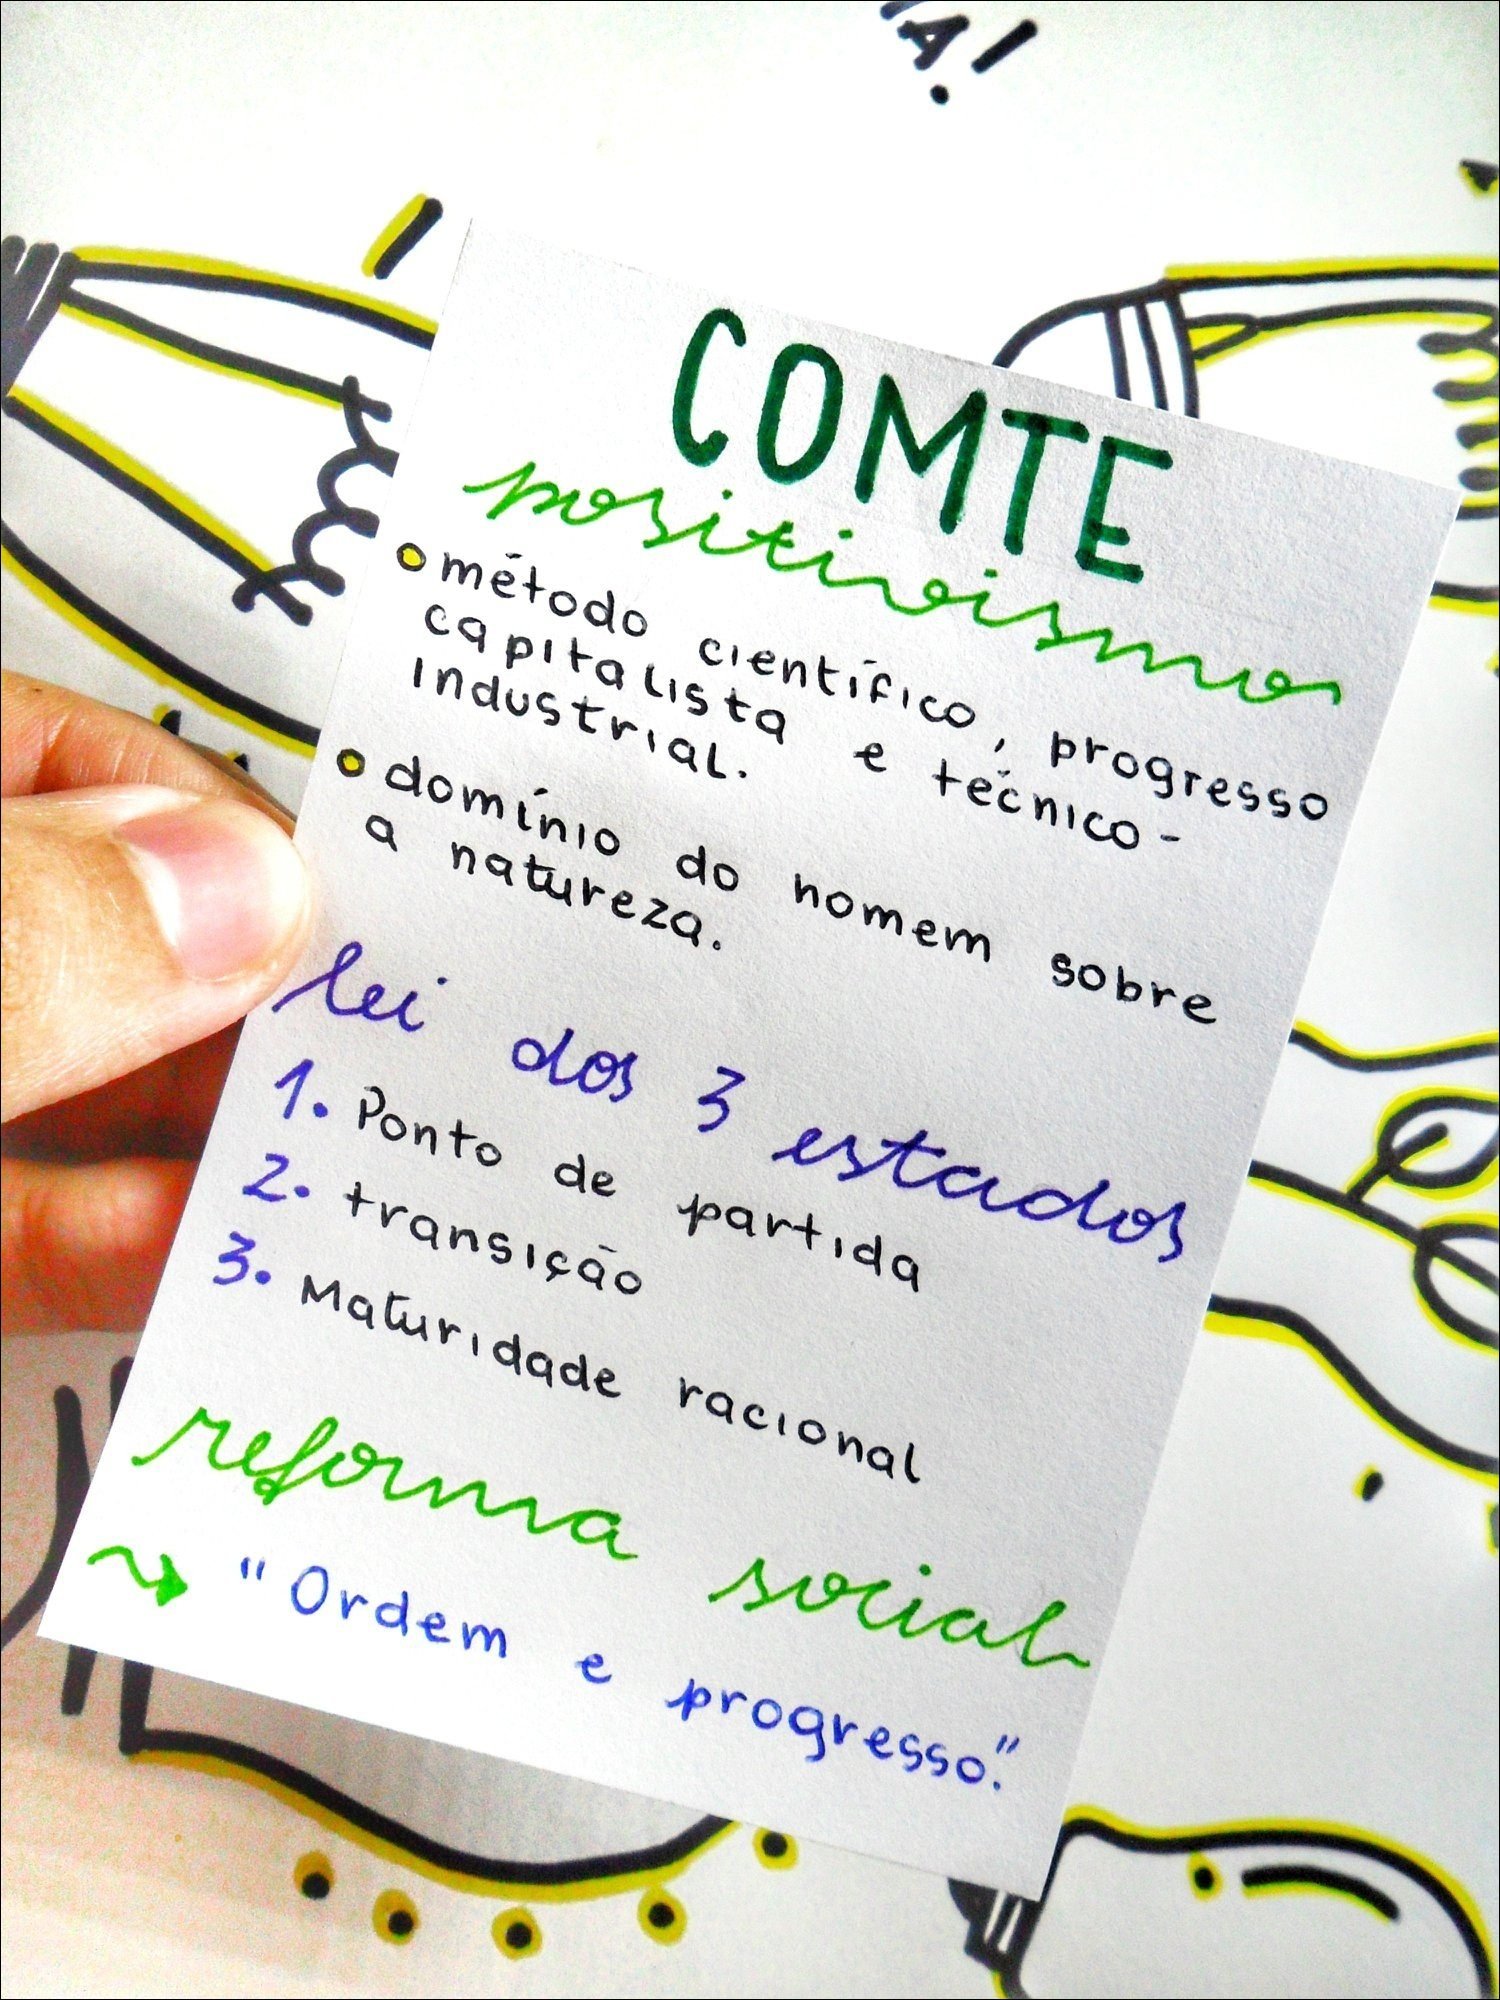 A!
COMTE
positivismo
método científico, progresso
capitalista e técnico-
industrial.
domínio do homem sobre
a natureza.
lei dos 3 estados
1. Ponto de partida
2. transição
3. Maturidade racional
reforma social
"Ordem e progresso."